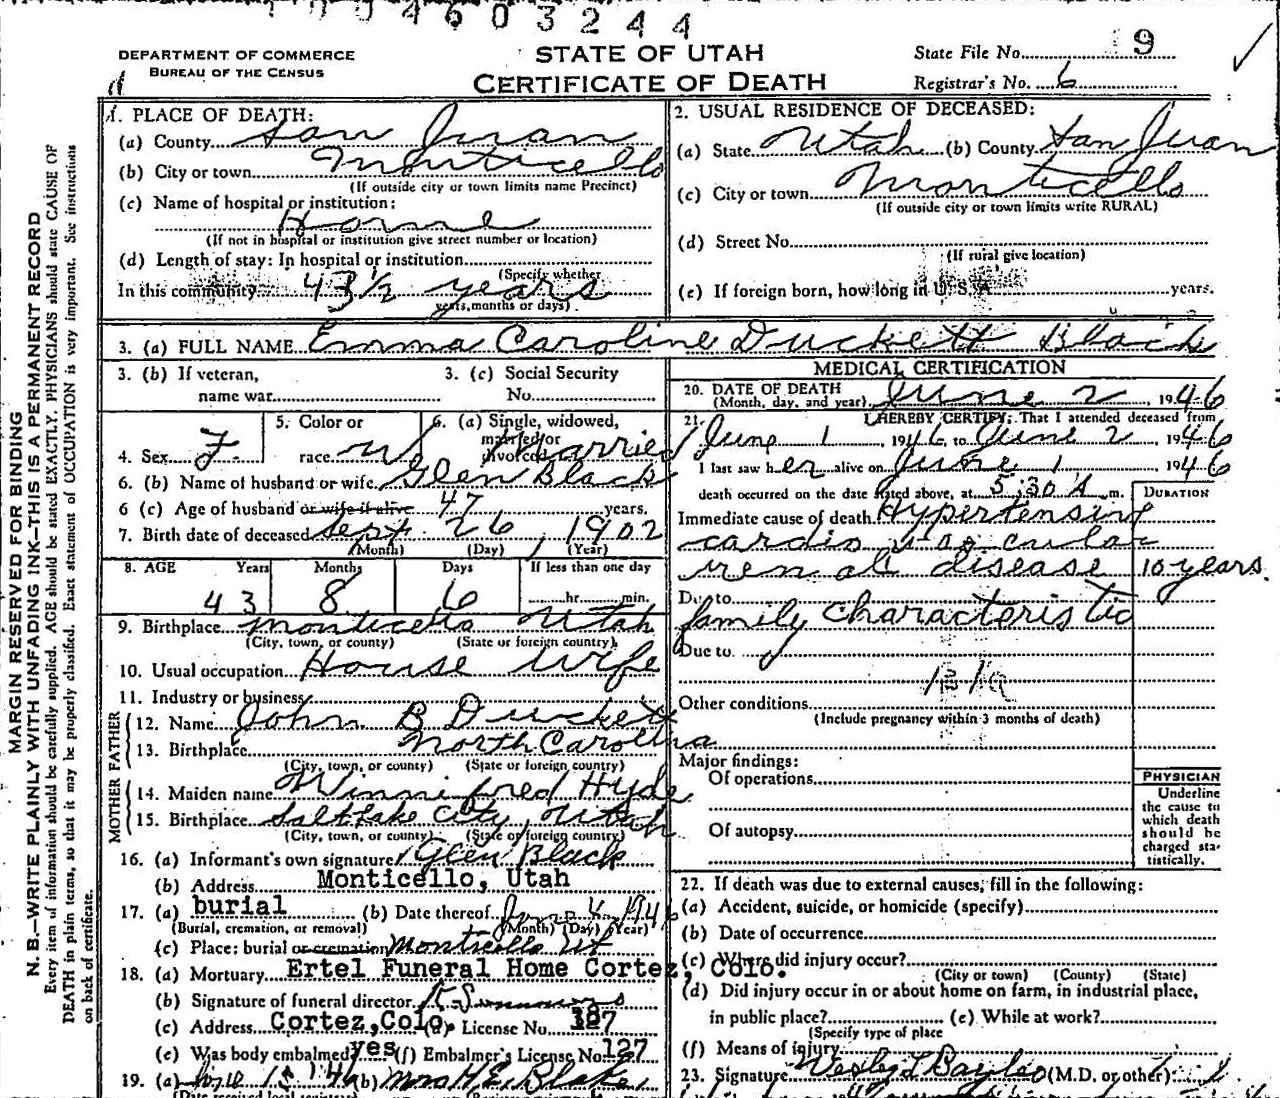 1004603244
DEPARTMENT OF COMMERCE
BUREAU OF THE CENSUS
STATE OF UTAH
CERTIFICATE OF DEATH
State File No. 9
Registrar's No. 6
MARGIN RESERVED FOR BINDING
N. B.—WRITE PLAINLY WITH UNFADING INK—THIS IS A PERMANENT RECORD
Every item of information should be carefully supplied. AGE should be stated EXACTLY. PHYSICIANS should state CAUSE OF
DEATH in plain terms, so that it may be properly classified. Exact statement of OCCUPATION is very important. See instructions
on back of certificate.
1. PLACE OF DEATH:
(a) County San Juan
(b) City or town Monticello
(If outside city or town limits name Precinct)
(c) Name of hospital or institution:
Home
(If not in hospital or institution give street number or location)
(d) Length of stay: In hospital or institution
(Specify whether
In this community 43½ years
years, months or days)
2. USUAL RESIDENCE OF DECEASED:
(a) State Utah (b) County San Juan
(c) City or town Monticello
(If outside city or town limits write RURAL)
(d) Street No.
(If rural give location)
(e) If foreign born, how long in U. S. A. years.
3. (a) FULL NAME Emma Caroline Duckett Black
3. (b) If veteran,
name war
3. (c) Social Security
No.
4. Sex F.
5. Color or
race W
6. (a) Single, widowed,
married or
divorced Married
6. (b) Name of husband or wife Glen Black
6 (c) Age of husband or wife if alive 47 years.
7. Birth date of deceased Sept 26, 1902
(Month) (Day) (Year)
8. AGE Years Months Days If less than one day
43 8 6 hr. min.
9. Birthplace Monticello Utah
(City, town, or county) (State or foreign country)
10. Usual occupation House Wife
11. Industry or business
FATHER
12. Name John B Duckett
13. Birthplace North Carolina
(City, town, or county) (State or foreign country)
MOTHER
14. Maiden name Winnifred Hyde
15. Birthplace Salt Lake City, Utah
(City, town, or county) (State or foreign country)
16. (a) Informant's own signature Glen Black
(b) Address Monticello, Utah
17. (a) burial (b) Date thereof 4 1946
(Burial, cremation, or removal) (Month) (Day) (Year)
(c) Place: burial or cremation Monticello Ut
18. (a) Mortuary Ertel Funeral Home Cortez, Colo.
(b) Signature of funeral director
(c) Address Cortez,Colo. (d) License No. 127
(e) Was body embalmed yes (f) Embalmer's License No. 127
19. (a) 15 1946 (b) Mrs H.E. Blake
(Date received local registrar)
MEDICAL CERTIFICATION
20. DATE OF DEATH
(Month, day, and year) June 2 1946
21. I HEREBY CERTIFY: That I attended deceased from
June 1, 1946, to June 2, 1946
I last saw her alive on June 1 1946
death occurred on the date stated above, at 5:30 A m.
DURATION
Immediate cause of death Hypertensive
cardio vascular
renal disease 10 years.
Due to
family characteristic
Due to
131a
Other conditions
(Include pregnancy within 3 months of death)
Major findings:
Of operations
Of autopsy
PHYSICIAN
Underline
the cause to
which death
should be
charged sta-
tistically.
22. If death was due to external causes, fill in the following:
(a) Accident, suicide, or homicide (specify)
(b) Date of occurrence
(c) Where did injury occur?
(City or town) (County) (State)
(d) Did injury occur in or about home on farm, in industrial place,
in public place? (e) While at work?
(Specify type of place
(f) Means of injury
23. Signature Wesley (M.D. or other)